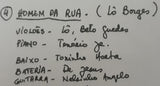 ④ HOMEM DA RUA - (Lô Borges)
VIOLÕES - Lô, Beto Guedes
PIANO - Tenório Jr.
BAIXO - Toninho Horta
BATERIA - De Jesus
GUITARRA - Nelsinho Angelo